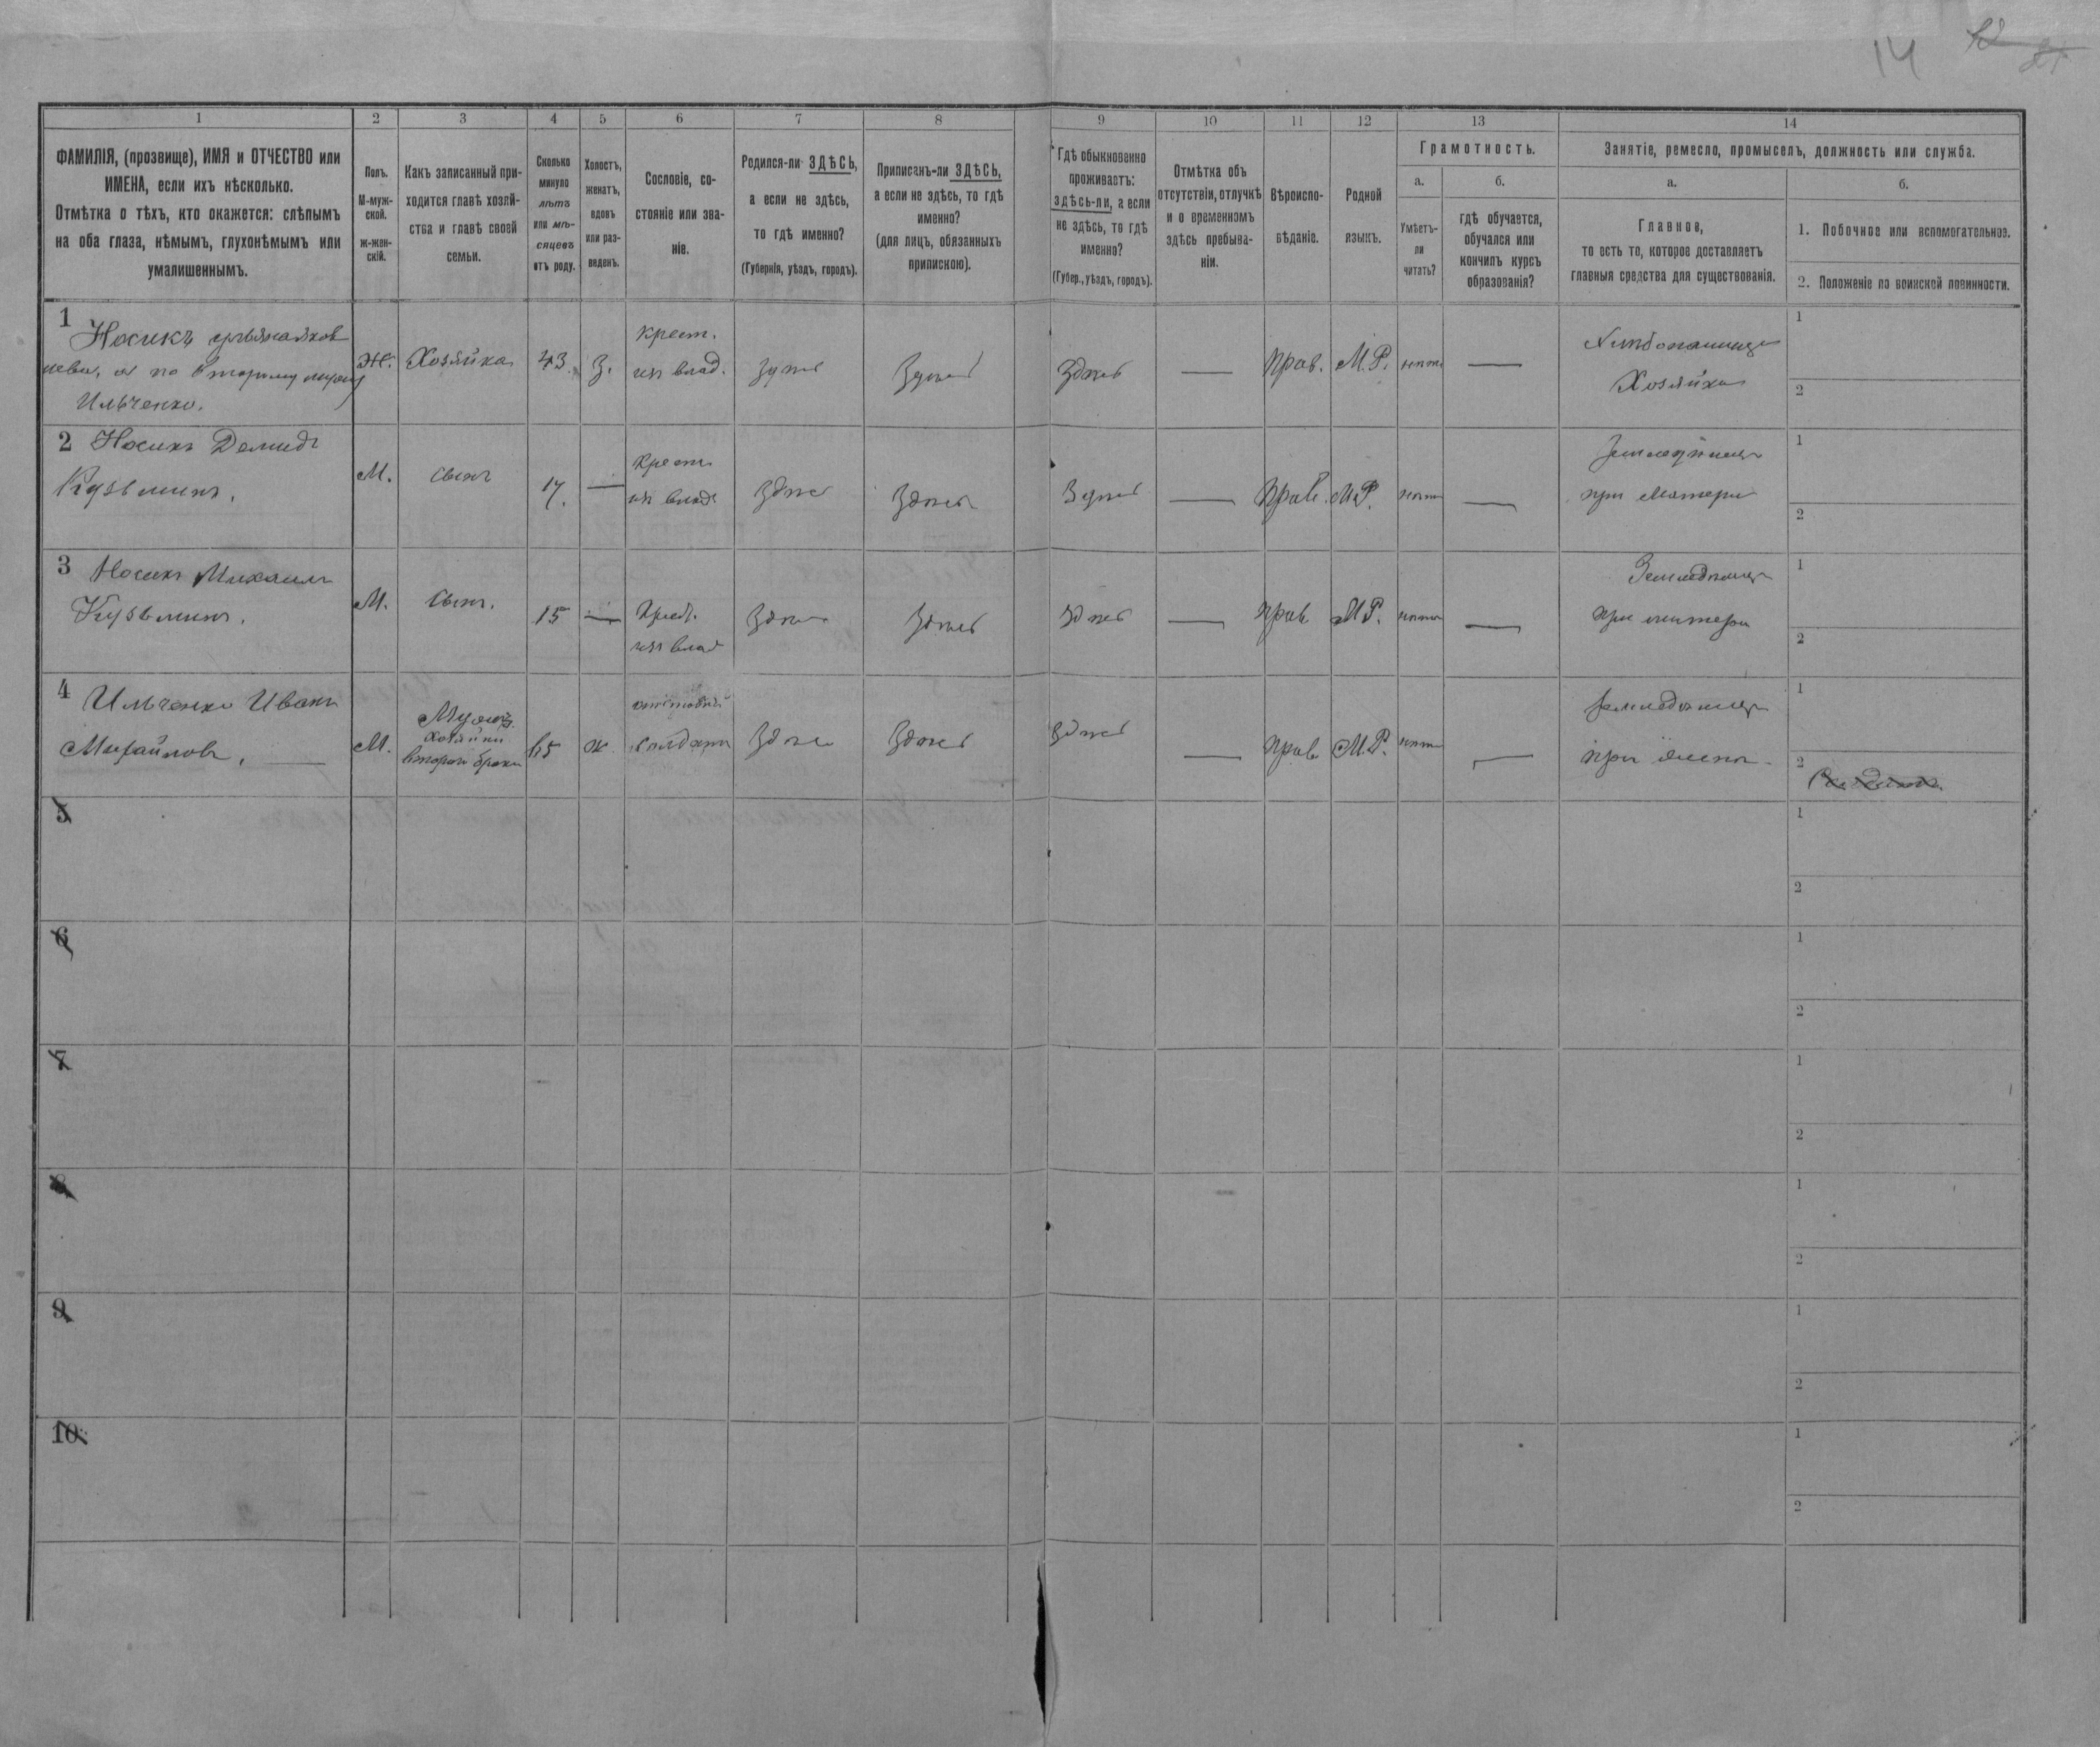 14
1
2
3
4
5
6
7
8
9
10
11
12
13
14
ФАМИЛІЯ, (прозвище), ИМЯ и ОТЧЕСТВО или
ИМЕНА, если ихъ нѣсколько.
Отмѣтка о тѣхъ, кто окажется: слѣпымъ
на оба глаза, нѣмымъ, глухонѣмымъ или
умалишеннымъ.
Полъ.
М-муж-
ской.
ж-жен-
скій.
Какъ записанный при-
ходится главѣ хозяй-
ства и главѣ своей
семьи.
Сколько
минуло
лѣтъ
или мѣ-
сяцевъ
отъ роду.
Холостъ,
женатъ,
вдовъ
или раз-
веденъ.
Сословіе, со-
стояніе или зва-
ніе.
Родился-ли ЗДѢСЬ,
а если не здѣсь,
то гдѣ именно?
(Губернія, уѣздъ, городъ).
Приписанъ-ли ЗДѢСЬ,
а если не здѣсь, то гдѣ
именно?
(для лицъ, обязанныхъ
припискою).
Гдѣ обыкновенно
проживаетъ:
здѣсь-ли, а если
не здѣсь, то гдѣ
именно?
(Губер., уѣздъ, городъ).
Отмѣтка объ
отсутствіи, отлучкѣ
и о временномъ
здѣсь пребыва-
ніи.
Вѣроиспо-
вѣданіе.
Родной
языкъ.
Грамотность.
а.
Умѣетъ-
ли
читать?
б.
гдѣ обучается,
обучался или
кончилъ курсъ
образованія?
Занятіе, ремесло, промыселъ, должность или служба.
а.
Главное,
то есть то, которое доставляетъ
главныя средства для существованія.
б.
1. Побочное или вспомогательное.
2. Положеніе по воинской повинности.
1
Носикъ
а по второму мужу
Ильченко.
Ж.
Хозяйка
43.
З.
крест.
изъ влад.
здѣсь
Здѣсь
Здѣсь
—
прав.
М.Р.
нѣтъ
—
Хозяйка
1
2
2 Носикъ Демидъ
Кузьминъ.
М.
сынъ
17.
—
крест.
изъ влад.
здѣсь
здѣсь
Здѣсь
—
прав.
М.Р.
нѣтъ
—
Земледѣлецъ
при матери
1
2
3 Носикъ Михаилъ
Кузьминъ.
М.
сынъ.
15
—
Крест.
изъ влад
здѣсь
здѣсь
здѣсь
—
прав
М.Р.
нѣтъ
—
Земледѣлецъ
при матери
1
2
4 Ильченко Иванъ
Михайловъ. —
М.
Мужъ
хозяйки
второй бракъ
65
ж.
отставной
солдатъ
здѣсь
здѣсь
здѣсь
—
прав
М.Р.
нѣтъ
—
земледѣлецъ
при женѣ
1
2
5
1
2
6
1
2
7
1
2
8
1
2
9
1
2
10
1
2